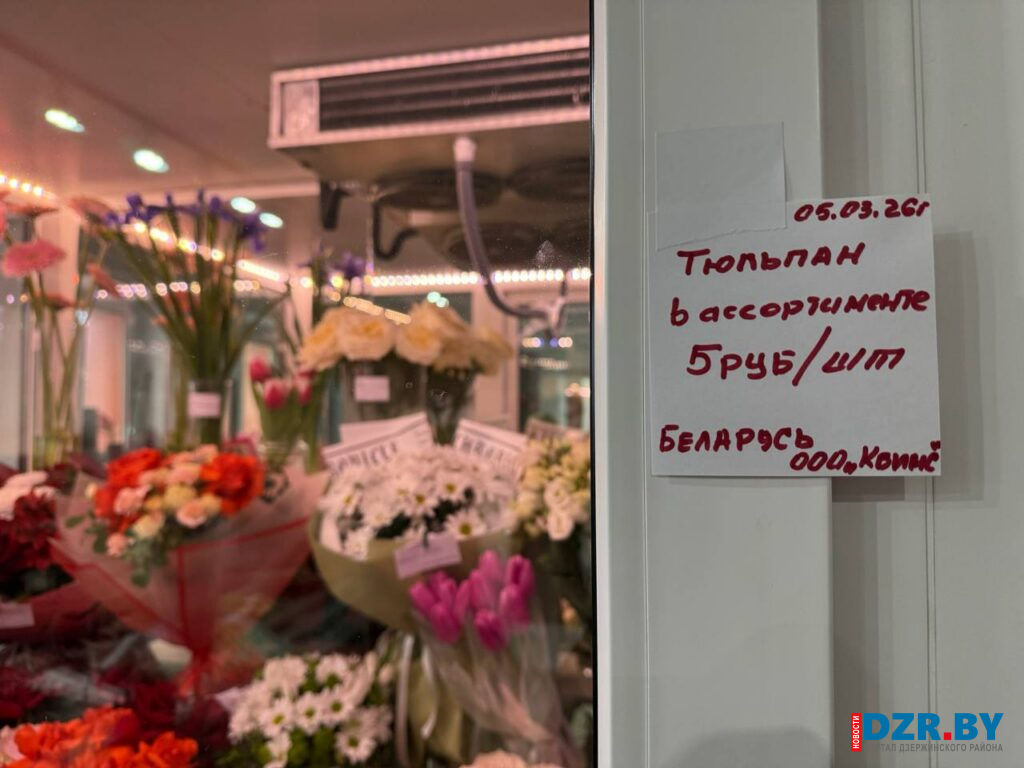 05.03.26г
Тюльпан
в ассортименте
5руб/шт
Беларусь
ООО „Квинс"
НОВОСТИ
DZR.BY
ТАЛ ДЗЕРЖИНСКОГО РАЙОНА